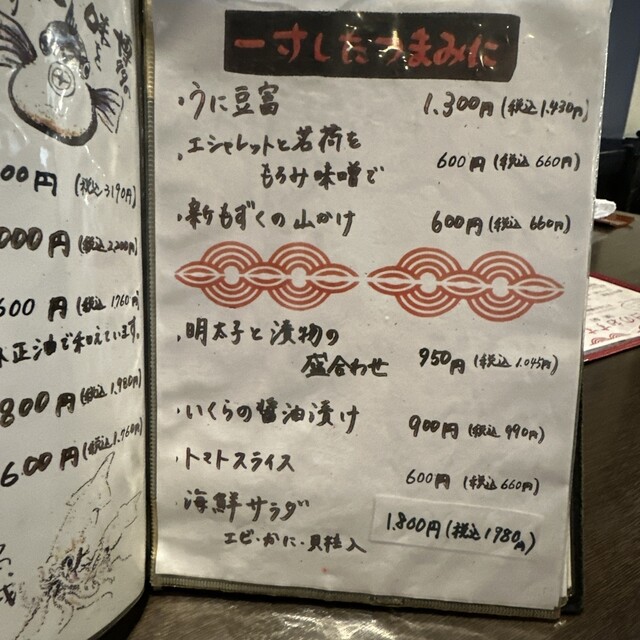 00円 (税込 3190円)
000円 (税込 2,200円)
600円 (税込 1760円)
正油で和えています。
800円 (税込 1,980円)
600円 (税込 1,760円)
一寸したつまみに
・うに豆富 1.300円 (税込 1,430円)
・エシャレットと茗荷を
もろみ味噌で 600円 (税込 660円)
・新もずくの山かけ 600円 (税込 660円)
・明太子と漬物の
盛合わせ 950円 (税込 1.045円)
・いくらの醤油漬け 900円 (税込 990円)
・トマトスライス 600円 (税込 660円)
・海鮮サラダ 1.800円 (税込 1980円)
エビ・かに・貝柱入